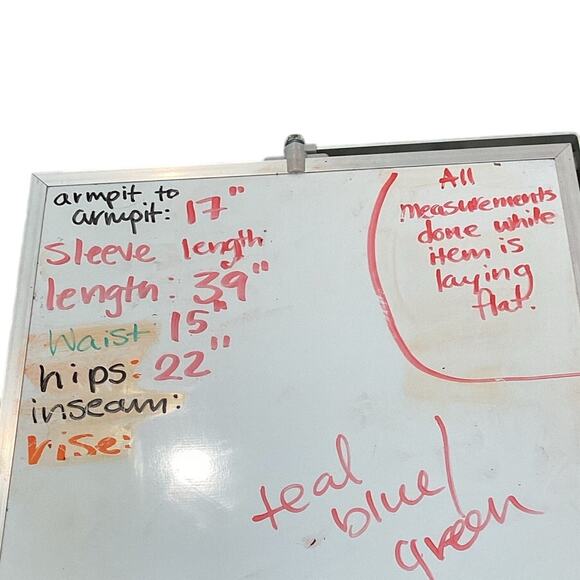 armpit to
armpit: 17"
sleeve length
length: 39"
Waist 15"
hips: 22"
inseam:
rise:
All
measurements
done while
item is
laying
flat.
teal
blue/
green